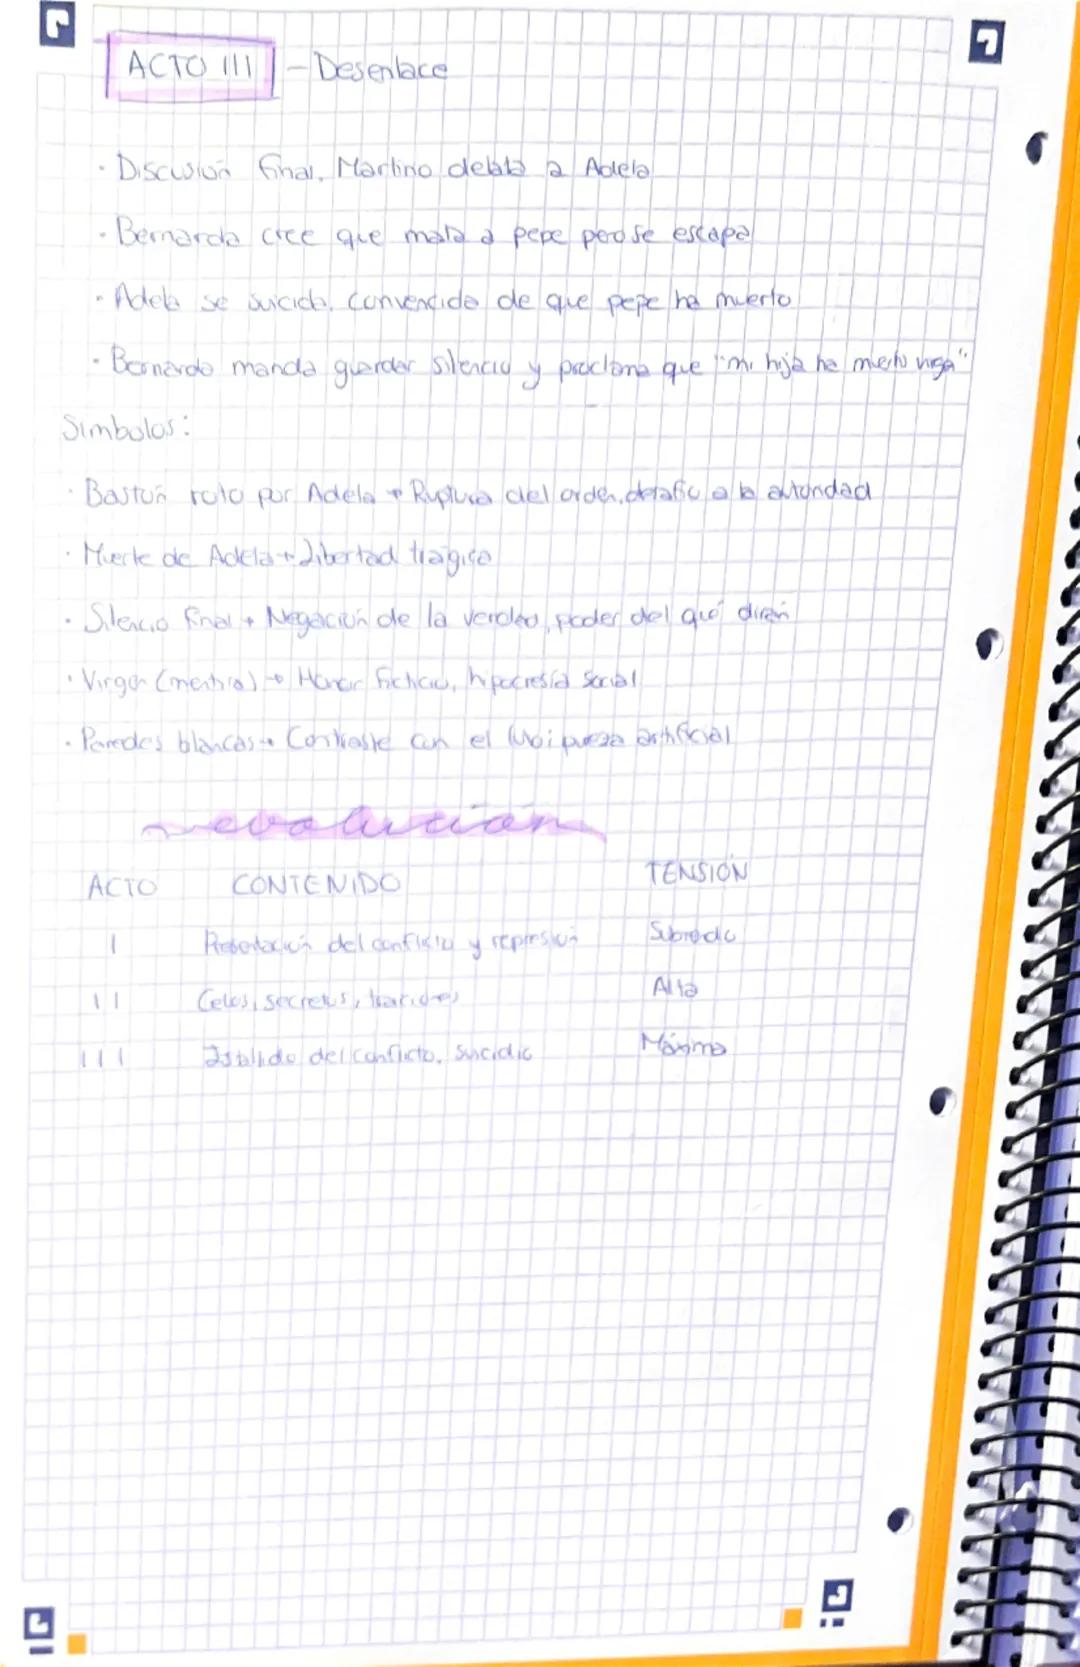 ACTO III - Desenlace
· Discusión final, Martirio delata a Adela
· Bernarda cree que mata a pepe pero se escapa
· Adela se suicida, convencida de que pepe ha muerto
· Bernarda manda guardar silencio y proclama que "mi hija ha muerto virgen"
Símbolos:
· Bastón roto por Adela → Ruptura del orden, desafío a la autoridad
· Muerte de Adela → Libertad trágica
· Silencio final → Negación de la verdad, poder del qué dirán
· Virgen (mentira) → Honor ficticio, hipocresía social
· Paredes blancas → Contraste con el luto; pureza artificial
evolución
ACTO CONTENIDO TENSIÓN
I Presentación del conflicto y represión
II Celos, secretos, traiciones Alta
III Estallido del conflicto, suicidio Máxima